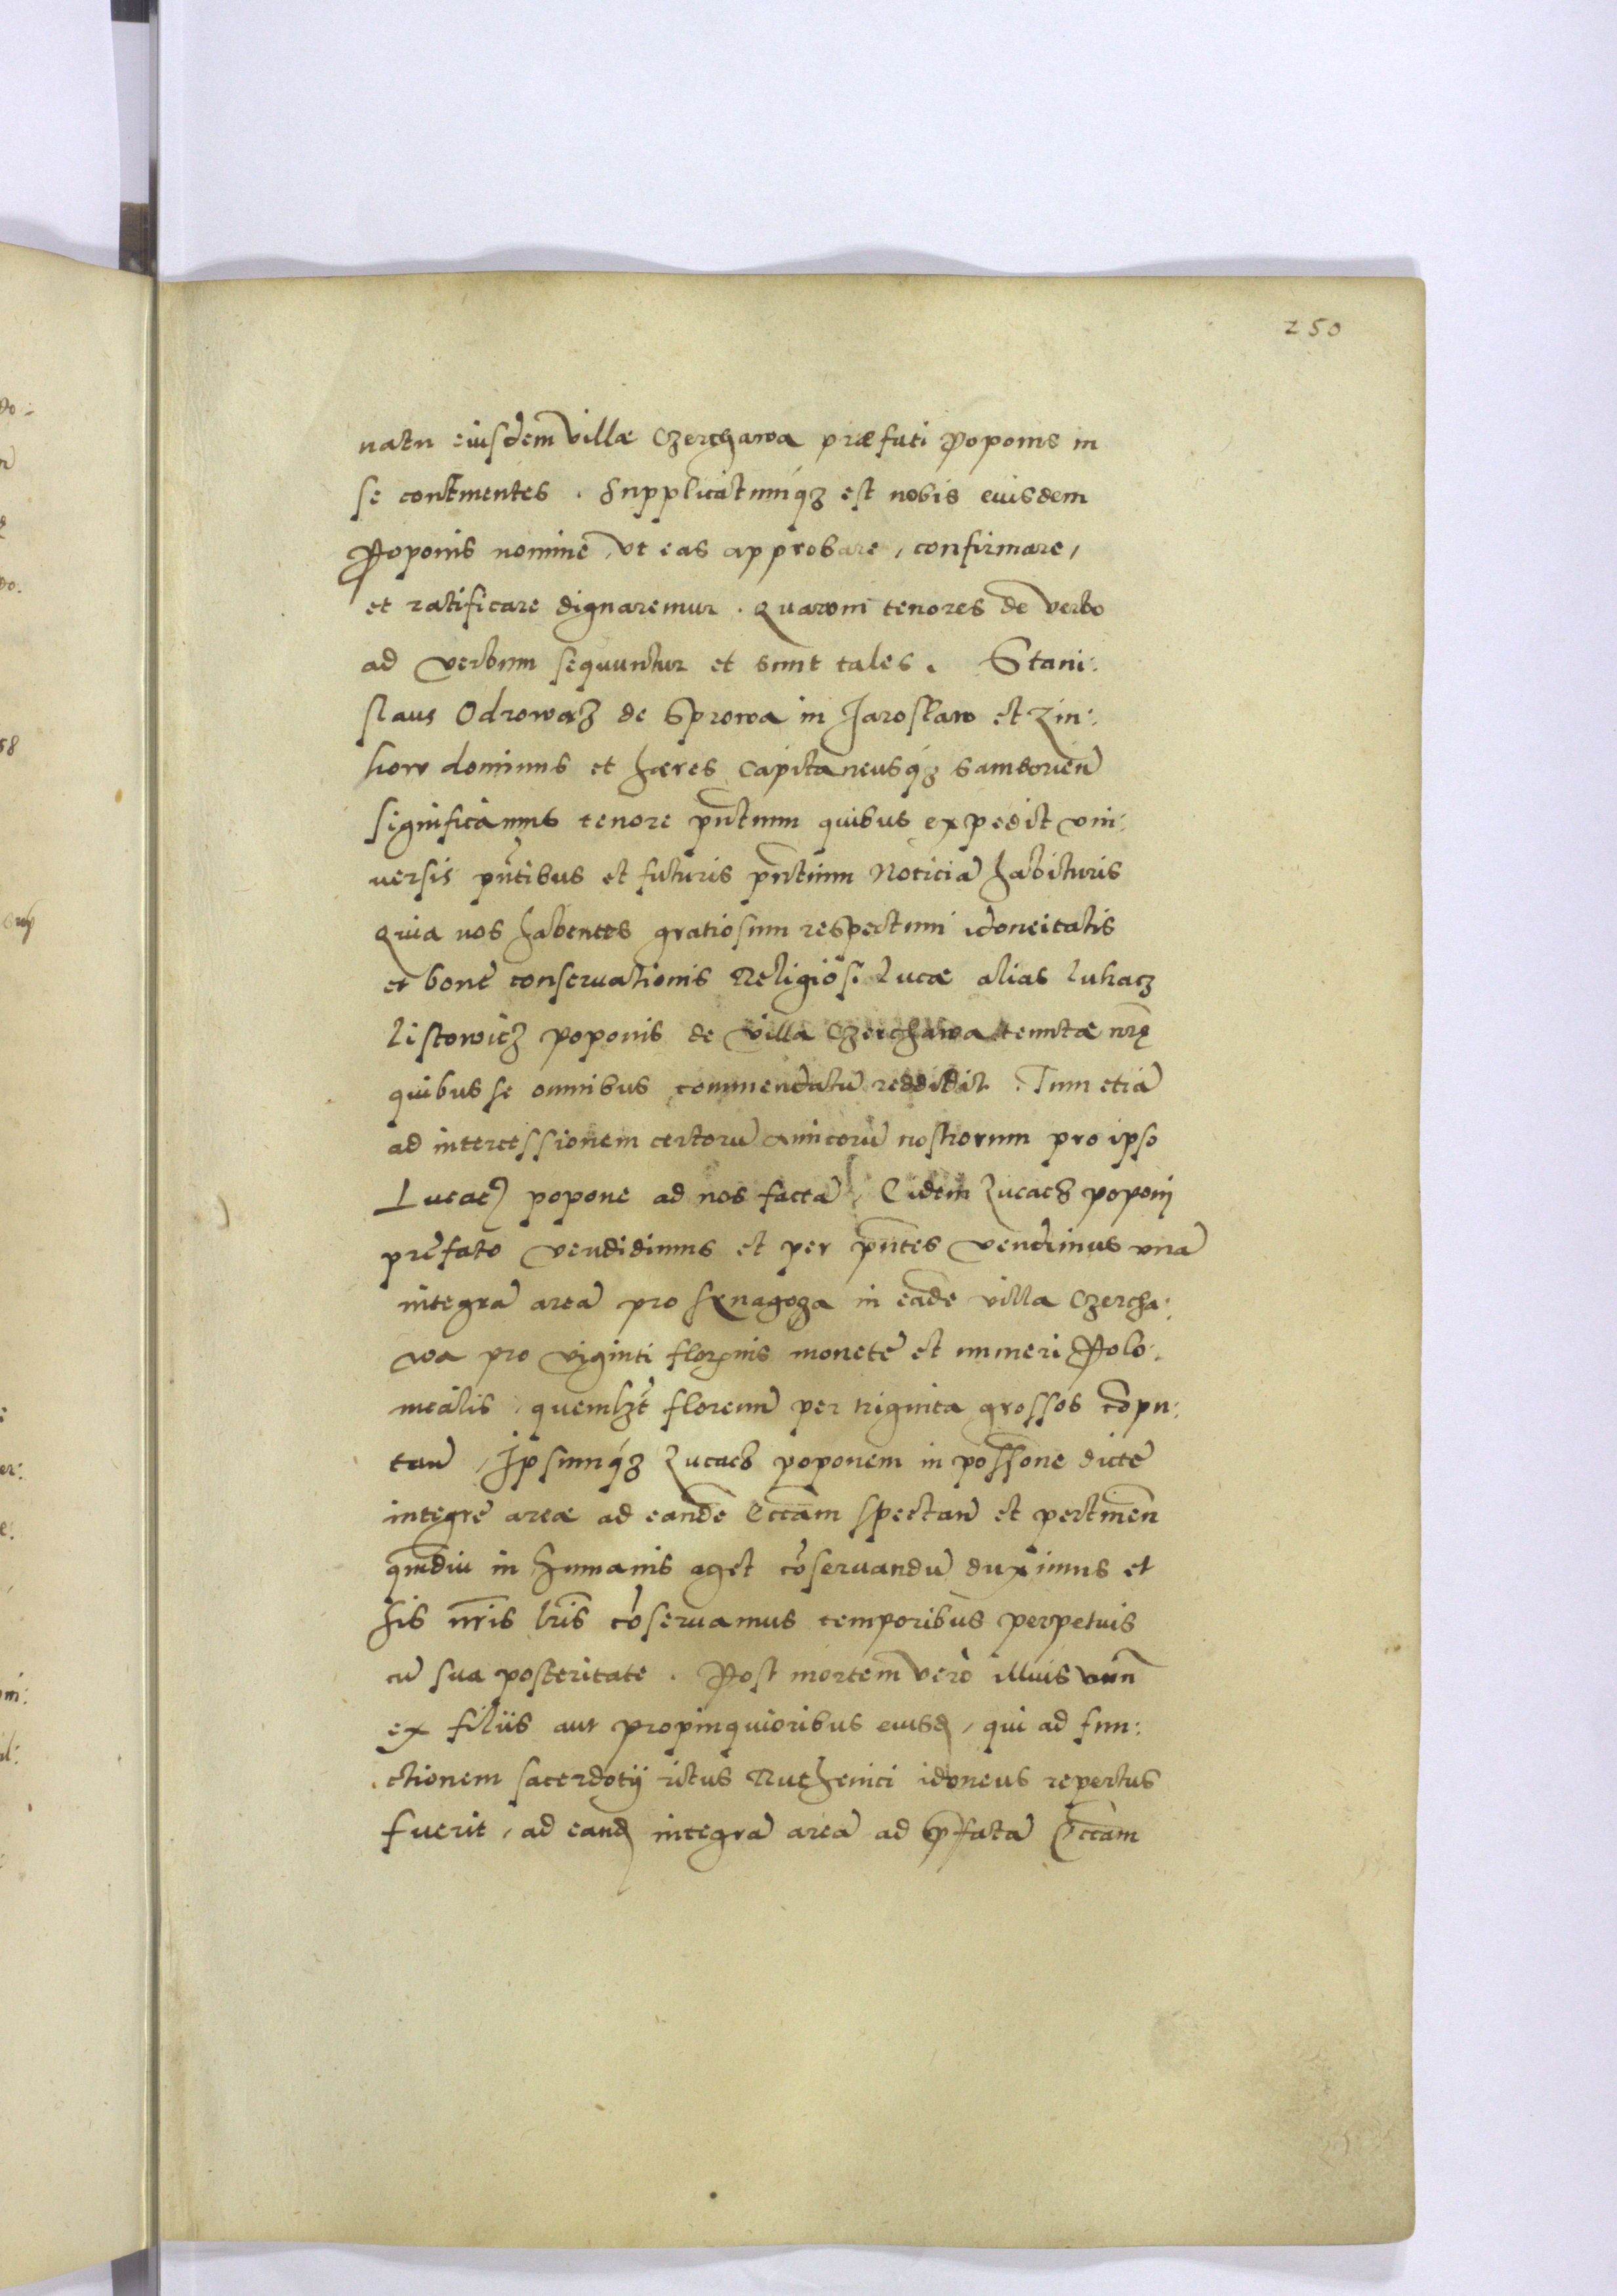 250
natu eiusdem villæ Czerchawa præfati Poponis in
se continentes. Supplicatumq3 est nobis eiusdem
Poponis nomine, vt eas approbare, confirmare,
et ratificare dignaremur. Quarum tenores de verbo
ad verbum sequuntur et sunt tales. Stani:
slaus Odrowąż de Sprowa in Jaroslaw et Zin:
kow dominus et hæres Capitaneusq3 Samborien̄
significamus tenore pn̄tium quibus expedit vni:
uersis pn̄tibus et futuris pn̄tium noticiā habituris
Quia nos habentes gratiosum respectum idoneitatis
et bone conseruationis Religiosi Lucæ alias Lukacz
Listowicz poponis de villa Czerchawa tenutæ nr̄ę
quibus se omnibus commendatū reddidit. Tum etiā
ad intercessionem certorū amicorū nostrorum pro ipso
Lucacz popone ad nos factā, Eidem Lucacz poponi
prefato vendidimus et per pn̄tes vendimus vnā
integrā areā pro synagoga in eādē villa Czercha:
wa pro viginti florenis monete et numeri Polo:
nicalis, quemlz̄t florenū per triginta grossos cōpu:
tan̄, Ipsumq3 Lucacz poponem in possōne dicte
integre areæ ad eandē Ecctām spectan̄ et pertinen̄
quādiu in humanis aget cōseruandū duximus et
his nr̄is lr̄is cōseruamus temporibus perpetuis
cū sua posteritate. Post mortem verò illius vnū
ex filiis aut propinquioribus eiusd, qui ad fun:
ctionem sacerdotij ritus Ruthenici idoneus repertus
fuerit, ad eand integrā areā ad p̄fatā Ecctām